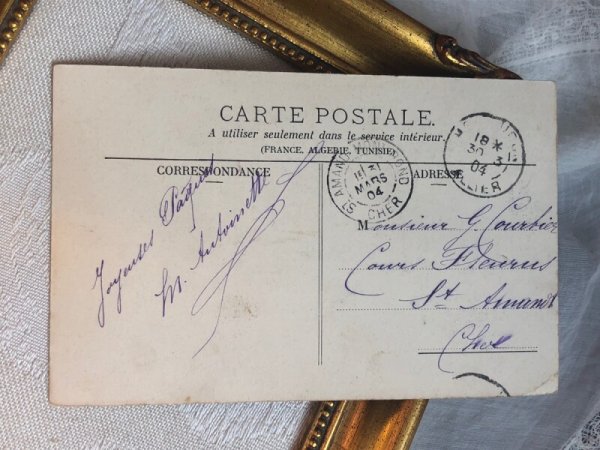 CARTE POSTALE.
A utiliser seulement dans le service intérieur.
(FRANCE, ALGERIE, TUNISIE)
CORRESPONDANCE
ADRESSE
Joyeuses Pâques
M. Antoinette
ST AMAND MONTROND
31
MARS
04
CHER
18*
30 3
04
ALLIER
Monsieur G. Courtier
Cours Fleurus
St Amand
Cher